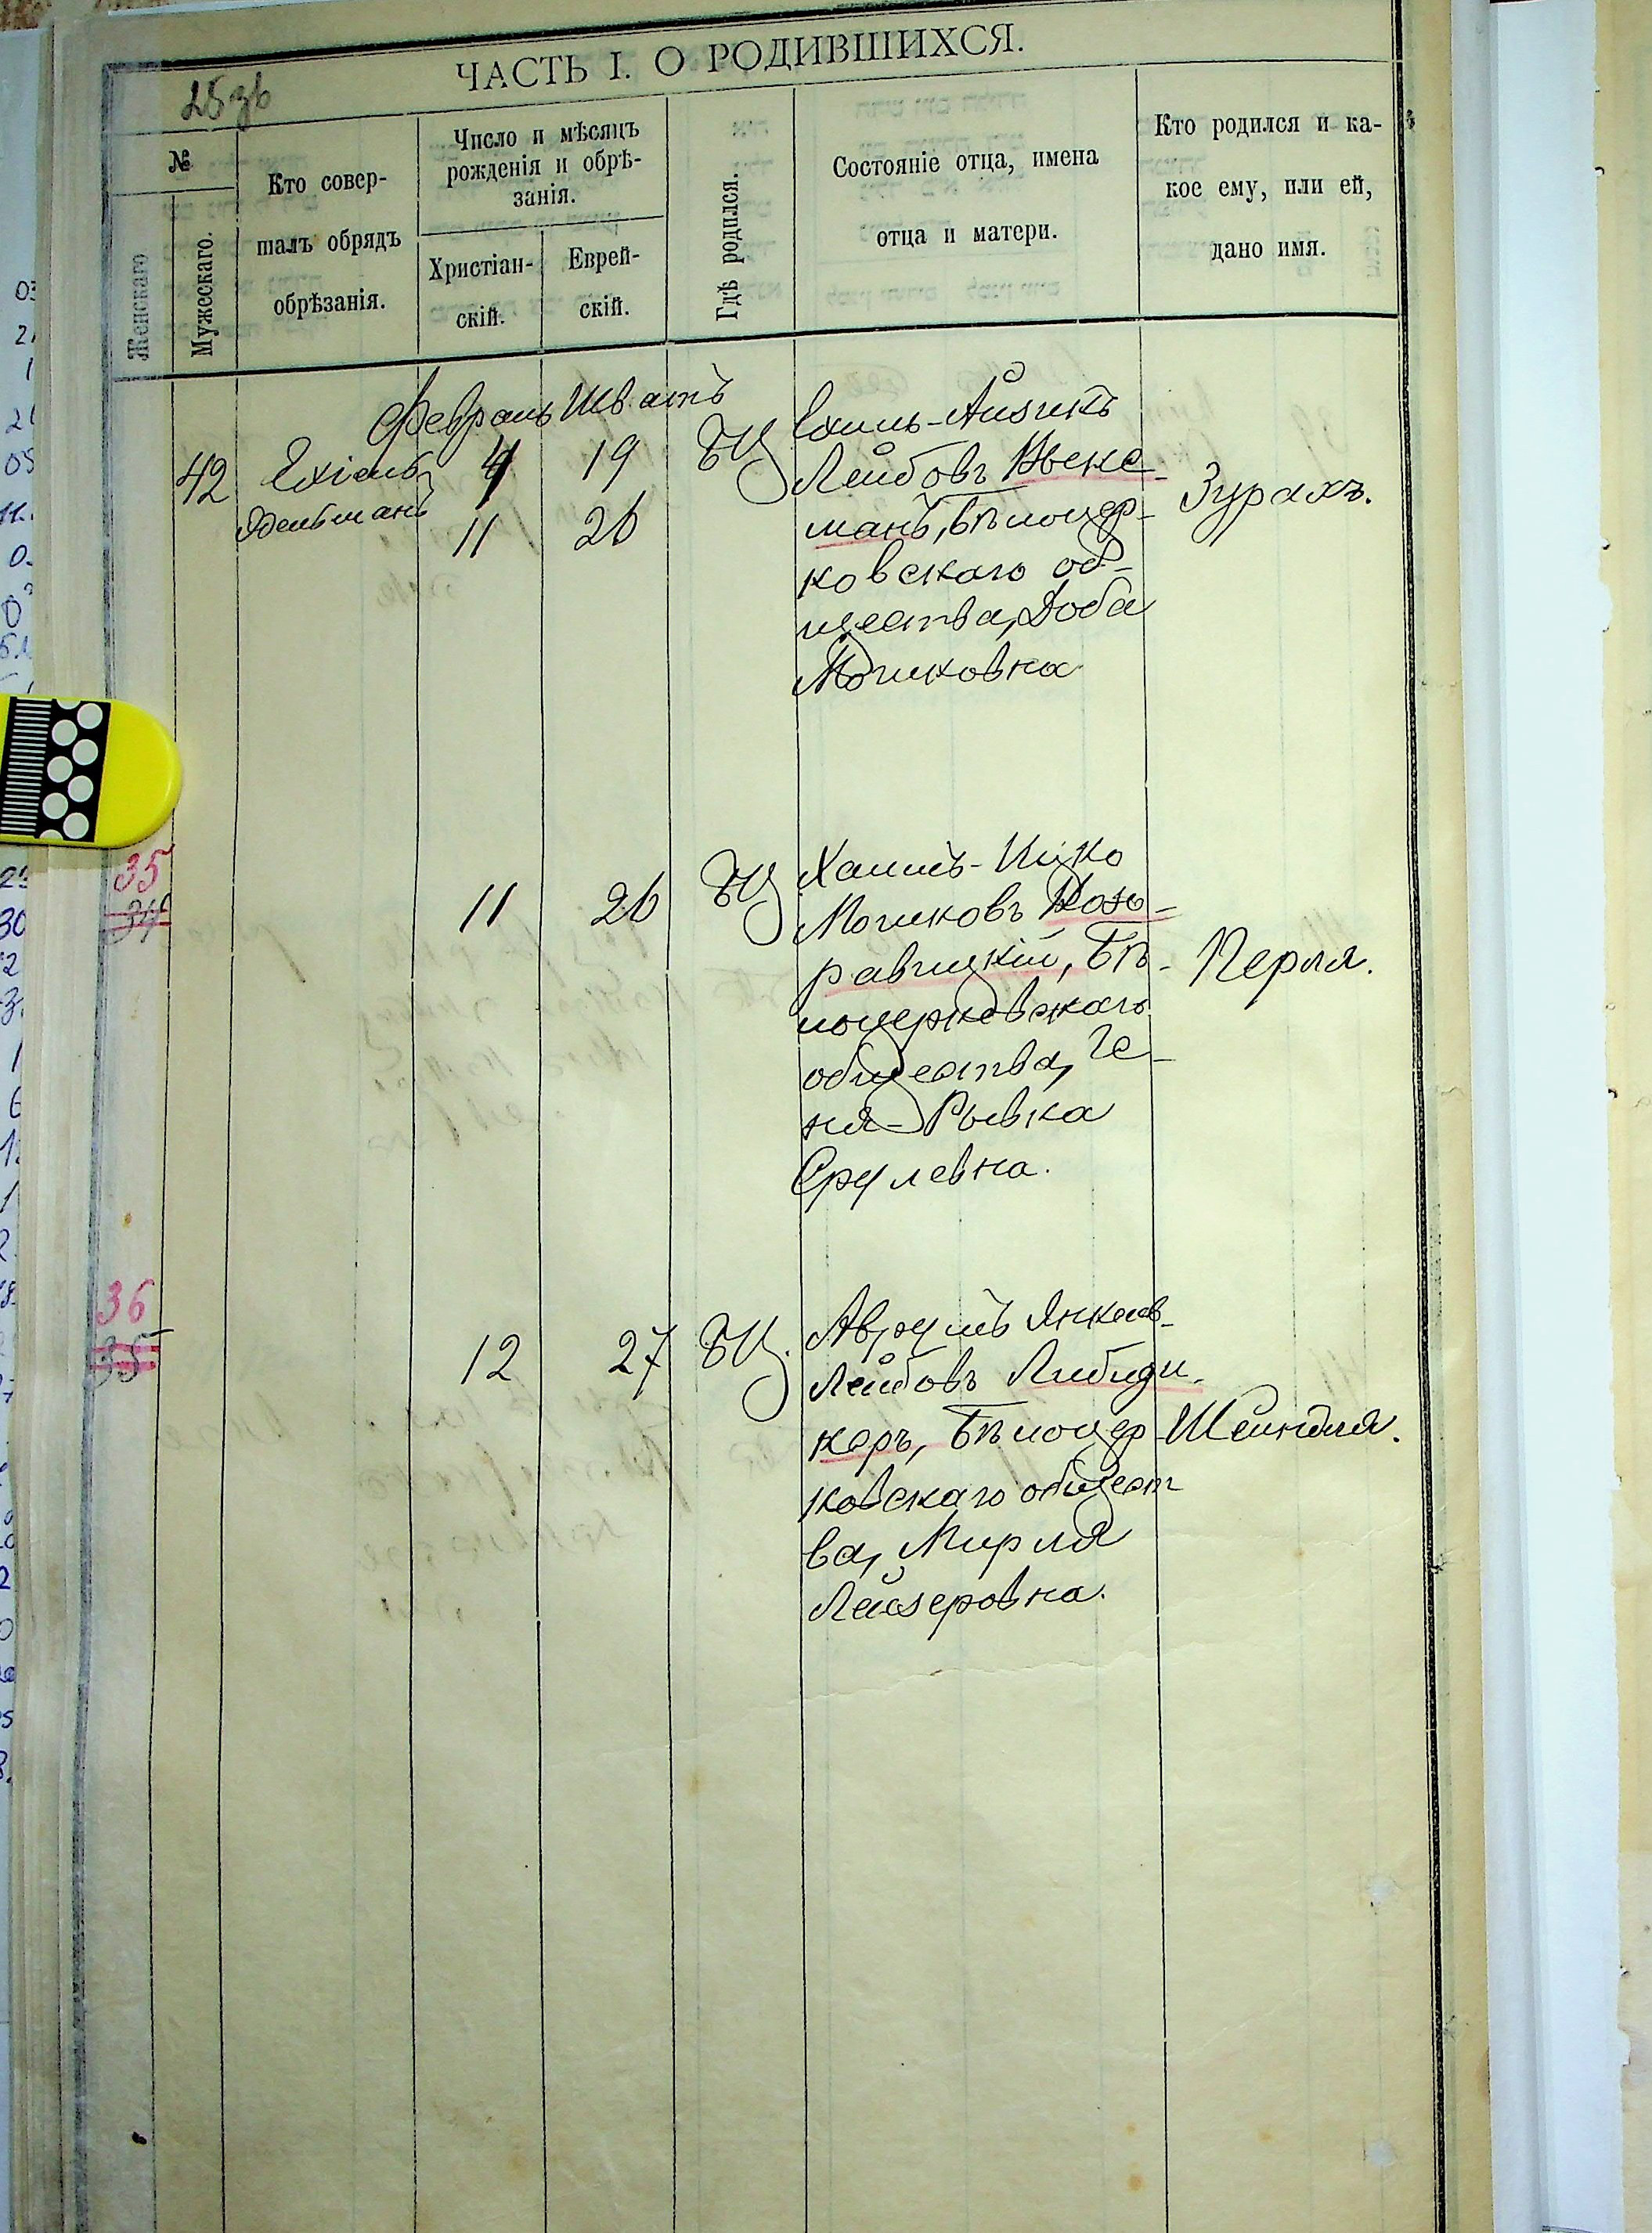 ЧАСТЬ I. О РОДИВШИХСЯ.
25 зв
№
Женскаго
Мужескаго.
Кто совер-
шалъ обрядъ
обрѣзанія.
Число и мѣсяцъ
рожденія и обрѣ-
занія.
Христіан-
скій.
Еврей-
скій.
Гдѣ родился.
Состояніе отца, имена
отца и матери.
Кто родился и ка-
кое ему, или ей,
дано имя.
Февраль Шватъ
42
Ехіель
Эдельманъ
4 19
11 26
БЦ
Ехиль-Айзикъ
Лейбовъ
манъ, Бѣлоцер-
ковскаго об-
щества, Доба
Мошковна
Зурахъ.
35
34
11 26
БЦ
Хаимъ-Ицко
Мошковъ
равицкій, Бѣ-
лоцерковскаго
общества, Ге-
ня-Рывка
Срулевна.
Перля.
36
35
12 27
БЦ.
Аврумъ Янкель-
Лейбовъ
керъ, Бѣлоцер-
ковскаго общест
ва, Мирля
Лейзеровна.
Шейндля.